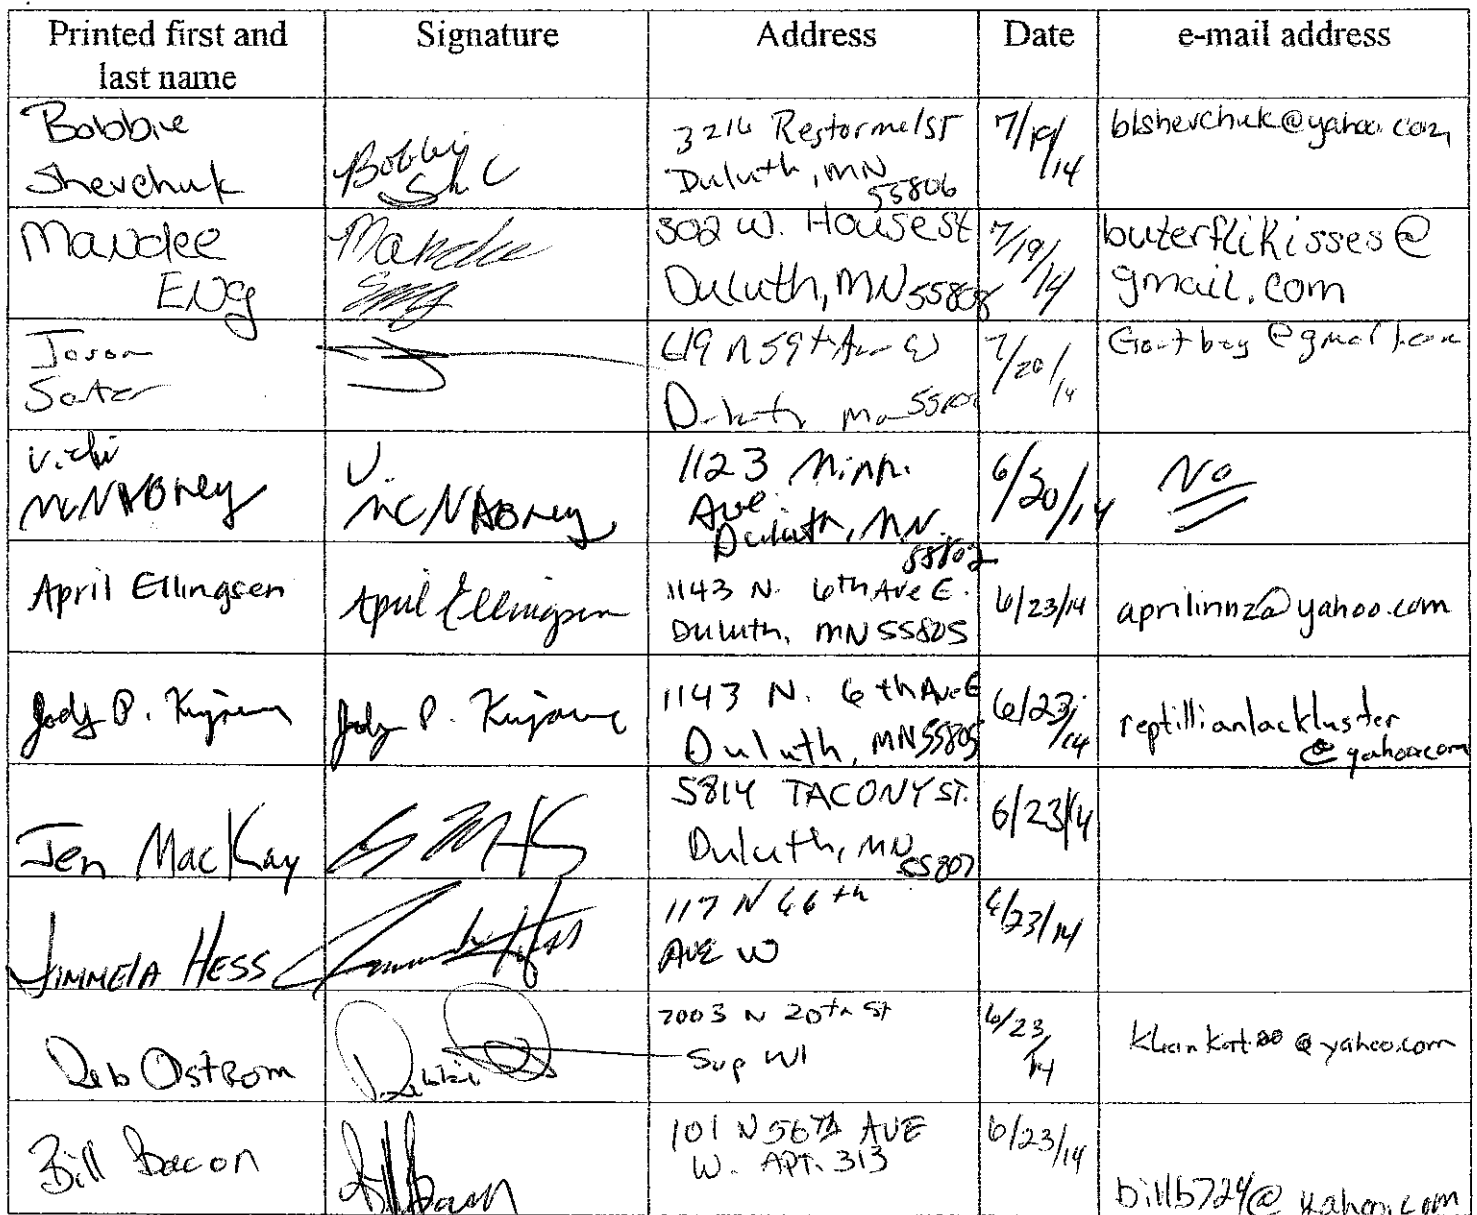 Printed first and last name | Signature | Address | Date | e-mail address
Bobbie Shevchuk | Bobbi | 3216 Restormel ST Duluth, MN 55806 | 7/19/14 | blshevchuk@yahoo.com
Mandee Eng | Mandee Eng | 302 W. House st Duluth, MN 55808 | 7/19/14 | buterflikisses@gmail.com
Jason | 619 N 59th Ave W Duluth | 7/20/14 | @gmail.com
Vicki McNabney | V. McNabney | 1123 Minn. Ave Duluth, MN. 55802 | 6/20/14 | No
April Ellingsen | April Ellingsen | 1143 N. 6th Ave E. Duluth, MN 55805 | 6/23/14 | @yahoo.com
Jody P. | Jody P. | 1143 N. 6th Ave E Duluth, MN 55805 | 6/23/14 | reptillianlackluster@yahoo.com
Jen MacKay | 5814 TACONY ST. Duluth, MN 55807 | 6/23/14
JIMMELA HESS | Hess | 117 N 66th AVE W | 6/23/14
Deb Ostrom | Debbie | N 20th St Sup WI | 6/23/14 | @yahoo.com
Bill Bacon | Bill Bacon | 101 N 56TH AVE W. APT. 313 | 6/23/14 | billb724@yahoo.com